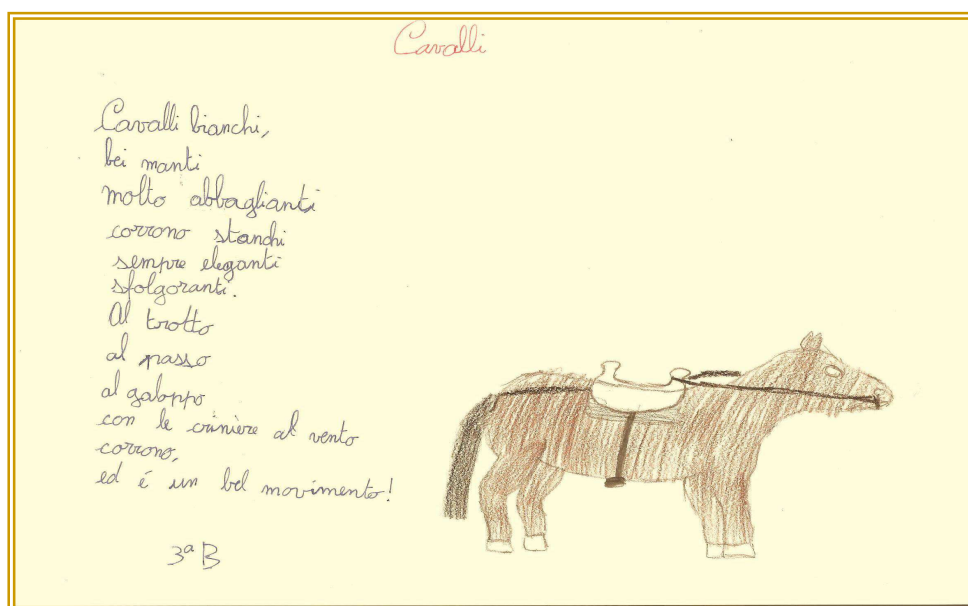 Cavalli
Cavalli bianchi,
bei manti
molto abbaglianti
corrono stanchi
sempre eleganti
sfolgoranti.
Al trotto
al passo
al galoppo
con le criniere al vento
corrono,
ed é un bel movimento!
3ª B